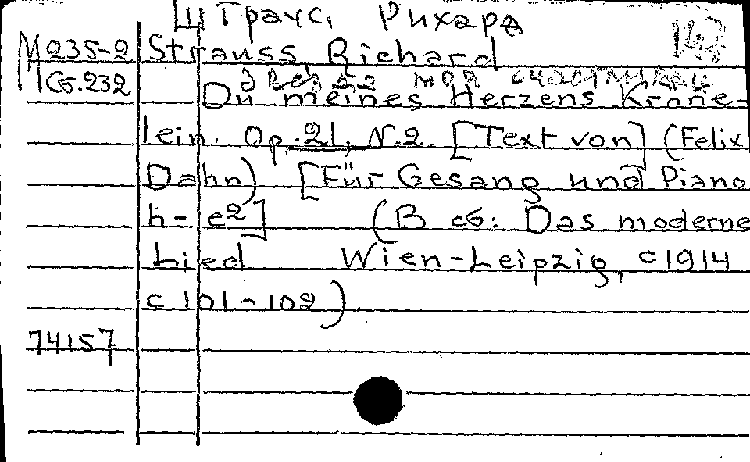 Штраус, Рихард
M235-2 Strauss, Richard
M Сб.232
Du meines Herzens Kröne-
lein. Op. 21, N.2. [Text von] (Felix
Dahn) [Für Gesang und Piano
h-e2] (В сб: Das moderne
Lied Wien-Leipzig, c1914
с 101-102)
74157